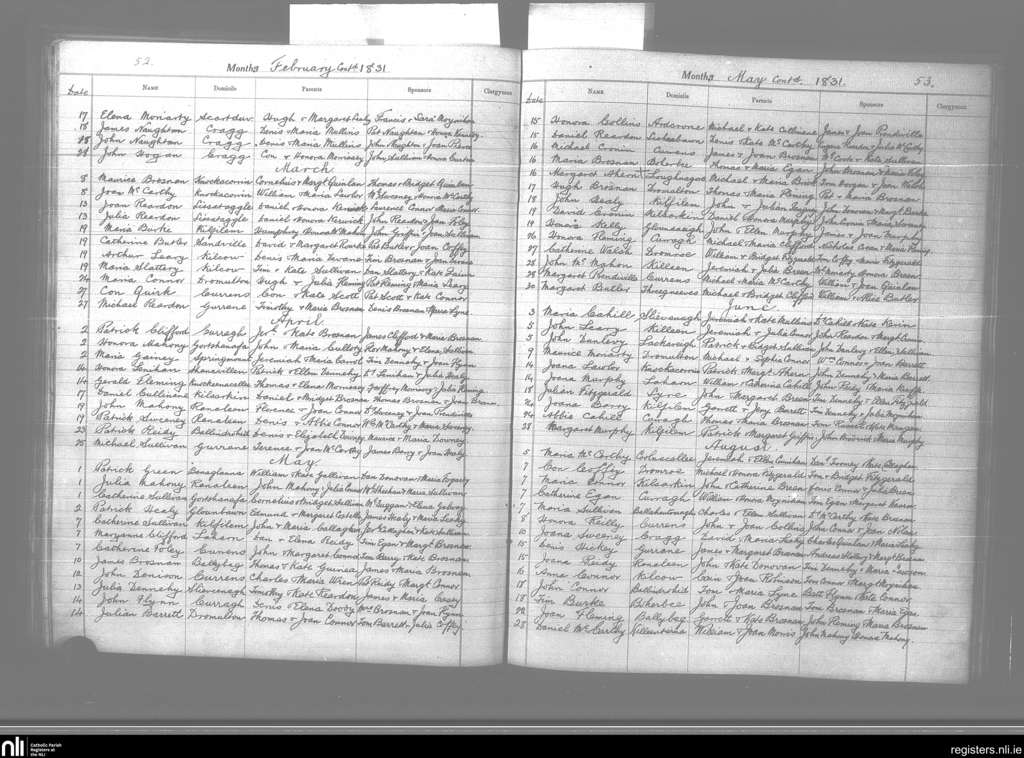 52.
Months February Contd. 1831
Date Name Domicile Parents Sponsors Clergyman
17 Elena Moriarty Scartduv Hugh + Margaret Francis + Sara Moynihan
18 James Naughton Cragg Denis + Maria Mullins Pat Naughton + Honora
28 John Naughton Cragg Denis + Maria Mullins John Naughton + Joan
28 John Horgan Cragg Con + Honora Morrissey John Sullivan + Honora
March
8 Maurice Brosnan Knockaconin Cornelius + Margt Quinlan Thomas + Bridget Quinlan
8 Joan McCarthy Knockaconin William + Maria Lawlor Wm Sweeney + Honora McCarthy
13 Joan Reardon Lissataggle Daniel + Honora Laurence Connor + Maria Connor
13 Julia Reardon Lissataggle Daniel + Honora John Reardon + Joan Foley
19 Maria Burke Kilfilem Humphrey + Honora McMahon John Griffin + Joan Sullivan
19 Catherine Butler Handville David + Margaret Rourke Pat Butler + Joan Coffey
19 Arthur Leary Kilcow Denis + Maria Tim Brosnan + Joan
19 Maria Slattery Kilcow Tim + Kate Sullivan Dan Slattery + Kate
24 Maria Connor Dromulton Hugh + Julia Fleming Pat Fleming + Maria Leary
27 Con Quirk Currens Con + Kate Scott Pat Scott + Kate Connor
27 Michael Reardon Gurrane Timothy + Maria Brosnan Denis Brosnan + Maria Lyne
April
2 Patrick Clifford Curragh Jer. + Kate Brosnan James Clifford + Maria Brosnan
2 Honora Mahony Gortshanafa John + Maria Culloty Rev Mahony + Elena Sullivan
2 Maria Gainey Springmount Jeremiah + Maria Tim Dennehy + Joan Flynn
10 Honora Lenihan Shanavillen Patrick + Ellen Dennehy Ed Lenihan + Julia Healy
14 Gerald Fleming Knockeenacallen Thomas + Elena Morrissey Geoffry Morrissey + Julia Fleming
17 Daniel Cullinane Kilsarkin Daniel + Bridget Brosnan Thomas Brosnan + Joan
19 John Mahony Ranaleen Florence + Joan Connor Ed Sweeney + Joan Prendiville
19 Patrick Sweeney Ranaleen Denis + Abbie Connor Wm McCarthy + Maria Sweeney
23 Patrick Reidy Ballindrohid Denis + Elizabeth Maurice + Maria Downey
25 Michael Sullivan Gurrane Terence + Joan McCarthy James Barry + Joan Healy
May
1 Patrick Green Banaglanna William + Kate Gallivan Dan Donovan + Maria Fogarty
1 Julia Mahony Ranaleen John Mahony + Julia Connor Wm Sheehan + Maria Sullivan
1 Catherine Sullivan Gortshanafa Cornelius + Bridget Sullivan Wm Duggan + Elena Galvin
2 Patrick Healy Glounbawn Edmund + Margaret Costello James Healy + Maria Leahy
7 Catherine Sullivan Kilfilem John + Maria Callaghan Jer Callaghan + Kate Sullivan
7 Maryanne Clifford Laharn Dan + Elena Reidy Tim Egan + Margt Brosnan
7 Catherine Foley Cunens John + Margaret Connor Tim Barry + Kate Brosnan
10 James Brosnan Bellybeg Thomas + Kate Guinea James + Maria Brosnan
12 John Denison Currens Charles + Maria Wren Pat Reidy + Margt Connor
13 Julia Dennehy Slievenagh Timothy + Kate Reardon James + Maria Casey
14 John Flynn Curragh Denis + Elena Dooly Wm Brosnan + Joan Flynn
14 Julian Barrett Dromulton Thomas + Joan Connor Tom Barrett + Julia Coffey
53.
Months May Contd. 1831.
Date Name Domicile Parents Sponsors Clergyman
15 Honora Collins Ardcrone Michael + Kate Cullinane James + Joan Prendiville
15 Daniel Reardon Lisheenbawn Denis + Kate McCarthy Eugene Reardon + Julia McCarthy
16 Michael Cronin Cunens James + Joan Brosnan Wm Carte + Kate Sullivan
16 Maria Brosnan Bsherbee Thomas + Maria Egan John Brosnan + Maria
16 Margaret Ahern Loughnagore Michael + Maria Brick Tim Horgan + Joan Walsh
17 Hugh Brosnan Dromulton Thomas + Maria Fleming Pat + Maria Brosnan
18 John Healy Kilfilem John + Julian John Donovan + Margt Burke
19 David Cronin Kilsarkin Daniel + Honora Murphy John Cronin + Maria
19 Honora Kelly Glounaneagh John + Ellen Murphy James + Joan
26 Honora Fleming Curragh Michael + Maria Clifford Nicholas Crean + Maria
27 Catherine Walsh Dromroe William + Bridget Fitzgerald Tim Coffey + Maria Fitzgerald
28 John McMahon Killeen Jeremiah + Julia Breen Wm + Honora Breen
28 Margaret Prendiville Currens Michael + Maria McCarthy William + Joan Quinlan
30 Margaret Butler Threegneeves Michael + Bridget Clifford William + Alice Butler
June
3 Maria Cahill Slievenagh Jeremiah + Kate Mullins Ed Cahill + Kate
5 John Leary Killeen Jeremiah + Julia Connor John Reardon + Margt Connor
5 John Danlery Lackareigh Patrick + Bridget Sullivan John Danlery + Ellen Sullivan
9 Maurice Moriarty Dromulton Michael + Sophia Connor Wm Connor + Joan Barrett
14 Joana Lawlor Knockaconin Patrick + Margt Ahern John Dennehy + Maria Barrett
14 Joana Murphy Laharn William + Catherine Cahill John Reidy + Maria Keeffe
18 Julian Fitzgerald Lyne John + Margaret Breen Tim Dennehy + Ellen Fitzgerald
26 Joana Barry Kilfilem Garrett + Mary Barrett Tim Dennehy + Julia Moynihan
24 Abbie Cahill Curragh Thomas + Maria Brosnan Tom Russell + Kate Finegan
28 Margaret Murphy Kilfilem Patrick + Margaret Griffin John + Maria Murphy
August
5 Maria McCarthy Coolnacalliee Jeremiah + Ellen Dan Tooney + Kate Callaghan
7 Con Coffey Dromroe Michael + Honora Fitzgerald Tom + Bridget Fitzgerald
7 Maria Connor Kilsarkin John + Catherine Breen Denis Connor + Julia Breen
7 Catherine Egan Curragh William + Honora Moynihan Tim Egan + Honora
7 Maria Sullivan Ballahantouragh Charles + Ellen Sullivan Ed McCarthy + Kate Brosnan
8 Honora Reilly Currens John + Joan Collins John Connor + Joan
10 Joana Sweeney Cragg David + Maria Leahy Charles Quinlan + Maria Leahy
15 Denis Hickey Gurrane James + Margaret Brosnan Andreas Kelleher + Margt Brosnan
15 Joana Reidy Ranaleen John + Kate Donovan Tim Dennehy + Maria
16 Anna Connor Kilcow Cain + Joan Robinson Tim Connor + Margt Moynihan
18 John Connor Ballindrohid Tom + Maria Lyne Batt Flynn + Kate Connor
18 Tim Burke Bsherbee John + Joan Brosnan Tom Brosnan + Maria Egan
22 Joan Fleming Ballybeg Garrett + Kate Brosnan John Fleming + Maria Brosnan
28 Daniel McCarthy William + Joan Morris John Mahony + Honora Mahony
nli Catholic Parish Registers at the NLI
registers.nli.ie